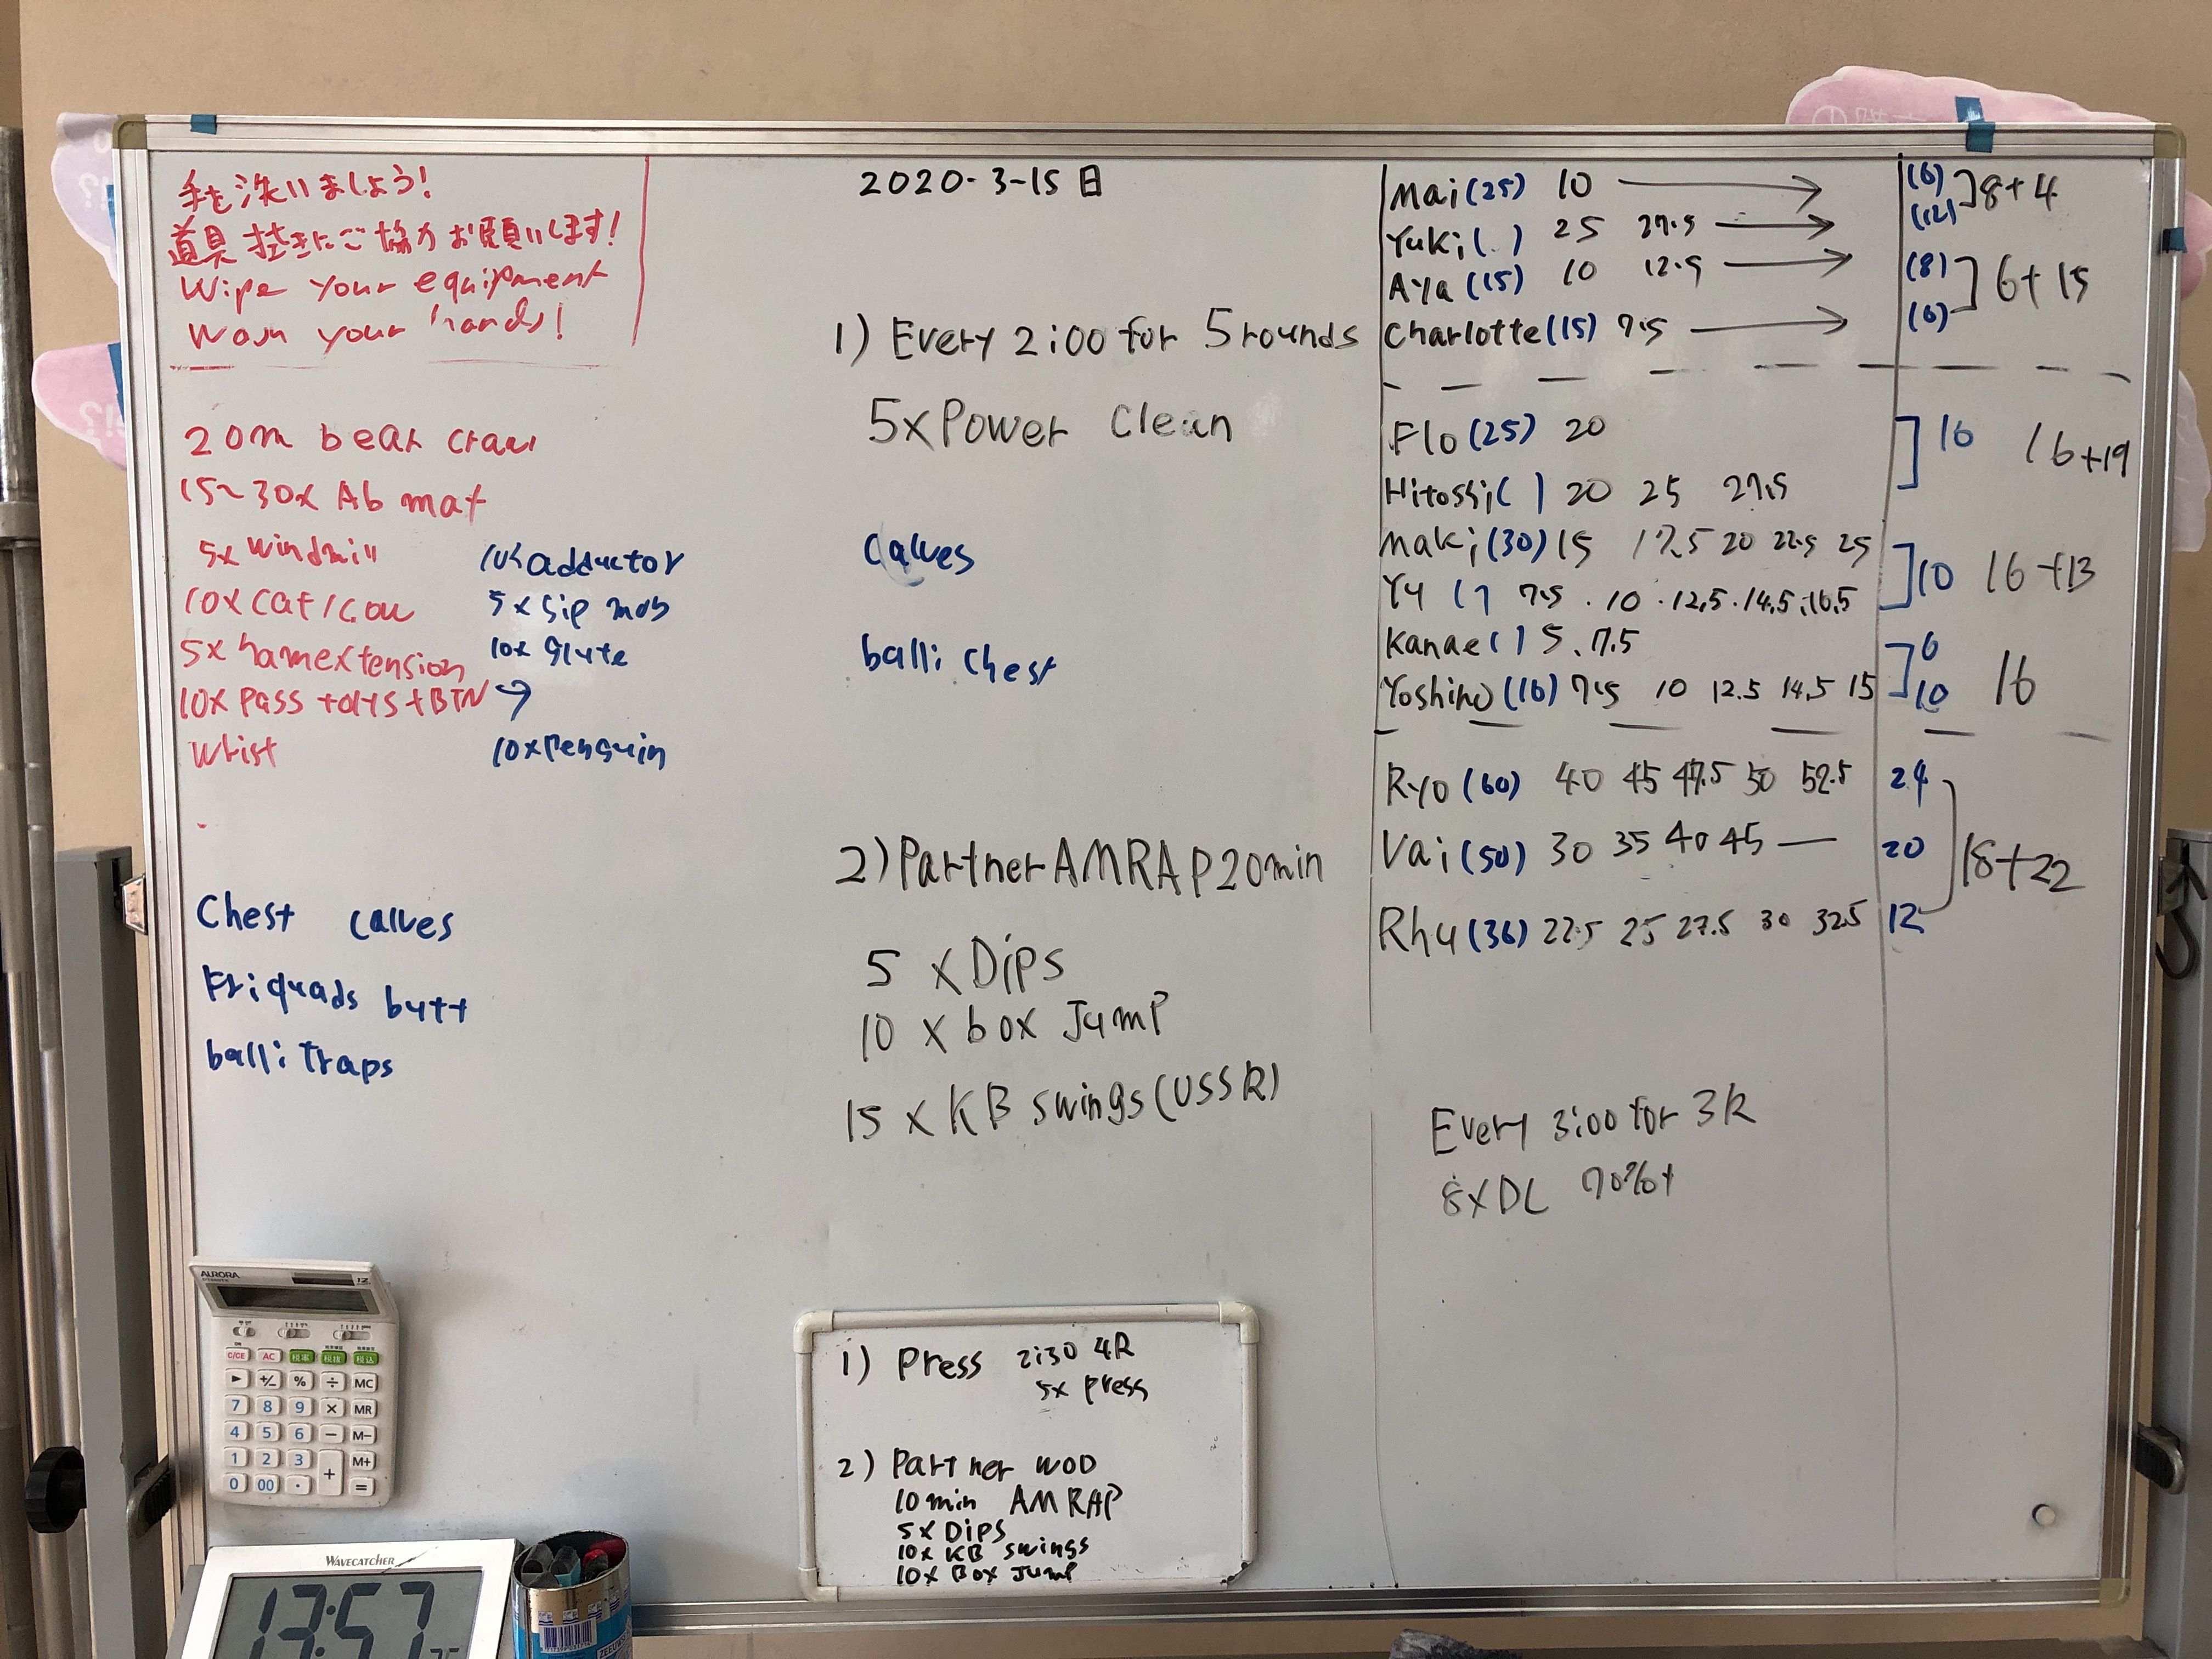 手を洗いましょう!
道具拭きにご協力お願いします!
Wipe your equipment
Wash your hands!
20m bear craw
15~30x Ab mat
5x windmill
10x cat/cow
5x hamextension
10x Pass +otys+BTN →
Wrist
adductor
5x hip mob
10x Glute
10x Penguin
Chest calves
Fri quads butt
balli traps
2020-3-15日
1) Every 2:00 for 5 rounds
5x Power Clean
calves
balli chest
2) Partner AMRAP 20min
5 x Dips
10 x box Jump
15 x KB swings (USSR)
1) Press 2:30 4R
5x press
2) Partner WOD
10 min AMRAP
5x Dips
10x KB swings
10x Box Jump
Mai (25) 10 → (6)
Yuki ( ) 25 27.5 → (12)
8+4
Aya (15) 10 12.5 → (8)
Charlotte (15) 7.5 → (6)
6+15
Flo (25) 20
Hitoshi ( ) 20 25 27.5
16 16+19
Maki (30) 15 17.5 20 22.5 25
Yu ( ) 7.5 . 10 . 12.5 . 14.5 . 16.5
10 16+13
Kanae ( ) 5、7.5 6
Yoshino (16) 7.5 10 12.5 14.5 15 10
16
Ryo (60) 40 45 47.5 50 52.5 24
Vai (50) 30 35 40 45 — 20
Rhu (36) 22.5 25 27.5 30 32.5 12
18+22
Every 3:00 for 3R
8x DL 70%+
AURORA
12
C/CE AC 税率 税抜 税込
+/- % ÷ MC
7 8 9 × MR
4 5 6 − M−
1 2 3 + M+
0 00 · =
WAVECATCHER
13:57